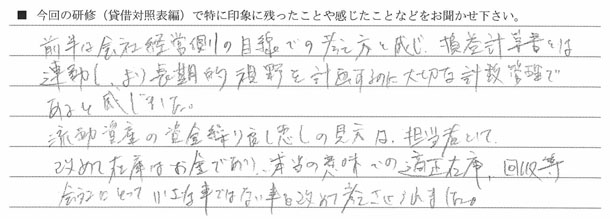 ■ 今回の研修（貸借対照表編）で特に印象に残ったことや感じたことなどをお聞かせ下さい。
前半は会社経営側の目線での考え方と感じ、損益計算書とは
連動し、より長期的視野を計画するのに大切な計数管理で
あると感じました。
流動資産の資金繰り良し悪しの見方は、担当者として
改めて在庫はお金であり、本当の意味での適正在庫、回収等
会社にとって小さな事ではない事を改めて考えさせられました。